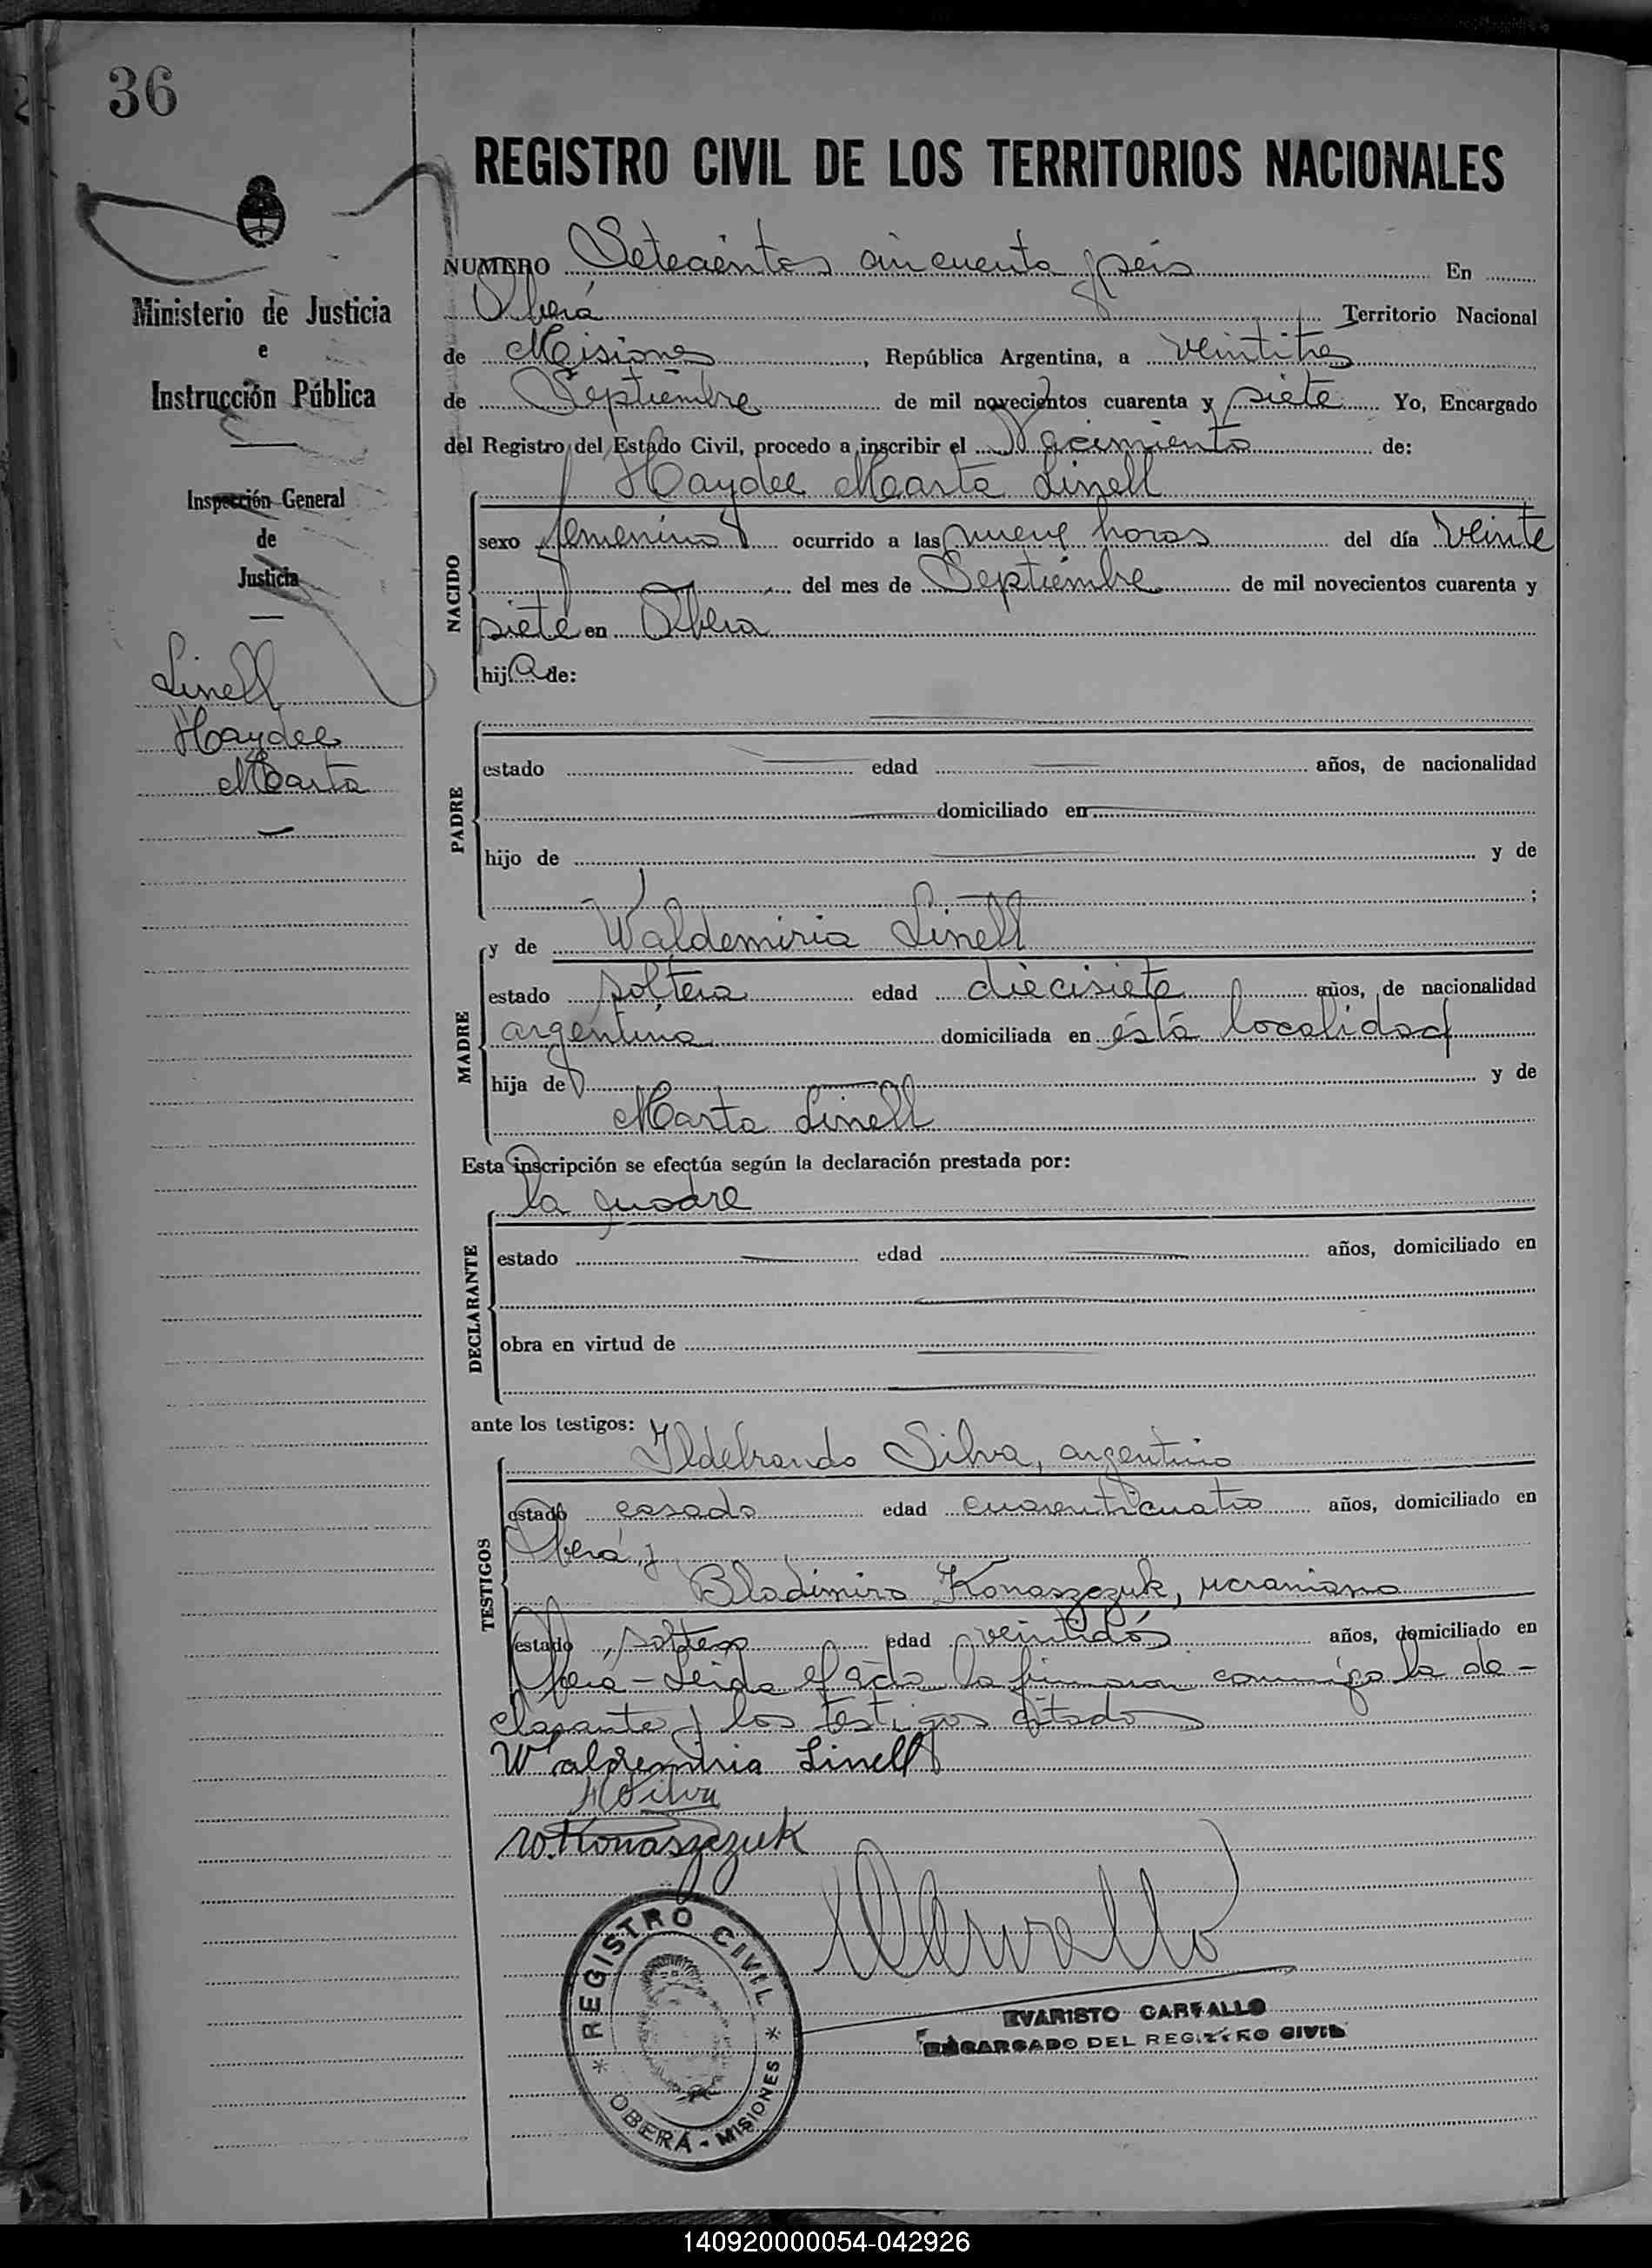 36
REGISTRO CIVIL DE LOS TERRITORIOS NACIONALES
Ministerio de Justicia
e
Instrucción Pública
Inspección General
de
Justicia
Linell
Haydee
Marta
NUMERO Setecientos cincuenta y seis En
Oberá Territorio Nacional
de Misiones, República Argentina, a veintitres
de Septiembre de mil novecientos cuarenta y siete Yo, Encargado
del Registro del Estado Civil, procedo a inscribir el Nacimiento de:
Haydee Marta Linell
NACIDO
sexo femenino ocurrido a las nueve horas del día veinte
del mes de Septiembre de mil novecientos cuarenta y
siete en Oberá
hija de:
PADRE
estado edad años, de nacionalidad
domiciliado en
hijo de y de
;
MADRE
y de Waldemiria Linell
estado soltera edad diecisiete años, de nacionalidad
argentina domiciliada en ésta localidad
hija de y de
Marta Linell
Esta inscripción se efectúa según la declaración prestada por:
la madre
DECLARANTE
estado edad años, domiciliado en
obra en virtud de
ante los testigos:
TESTIGOS
Ildebrando Silva, argentino
estado casado edad cuarenticuatro años, domiciliado en
Oberá y
Bladimiro Konaszczuk, ucraniano
estado soltero edad veintidós años, domiciliado en
Oberá - Leida el acta la firmaron conmigo la de-
clarante y los testigos citados
Waldemiria Linell
Silva
W. Konaszczuk
REGISTRO CIVIL
OBERÁ - MISIONES
EVARISTO CARVALLO
ENCARGADO DEL REGISTRO CIVIL
140920000054-042926